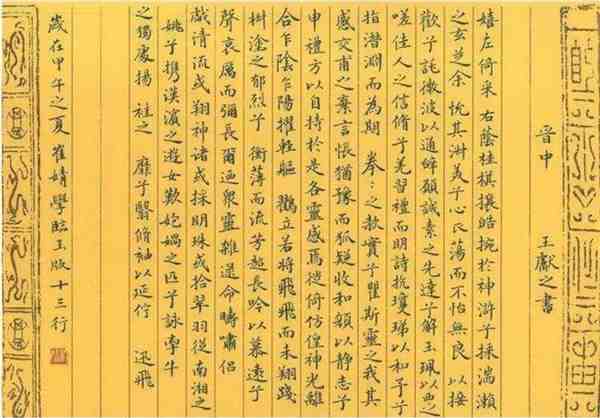 晉中 王獻之書
嬉左倚采 右蔭桂棋攘皓捥於神滸兮採湍瀨
之玄芝余 悅其淋美兮心 蕩而不怡無良 以接
歡兮託微波以通辭願誠素之先達兮解玉珮以要之
嗟佳人之信脩兮羌習禮而明詩抗瓊珶以和予兮
指潛淵而為期 拳〻之款實兮懼斯靈之我其
感交甫之棄言悵猶豫而狐疑收和顏以静志兮
申禮方以自持於是各靈感焉徙倚仿偟神光離
合乍陰乍陽擢輕軀 鶴立若將飛飛而未翔踐
椒塗之郁烈兮 衡薄而流芳超長吟以慕遠兮
聲哀厲而彌長爾迺衆靈雜遝命疇嘯侶
戲清流或翔神渚或採明珠或拾翠羽從南湘之
姚兮攜漢濱之遊女歎匏媧之匹兮詠牽牛
之獨處揚 袿之 靡兮翳脩袖以延佇 迅飛
歲在甲午之夏 崔婧學臨王版十三行